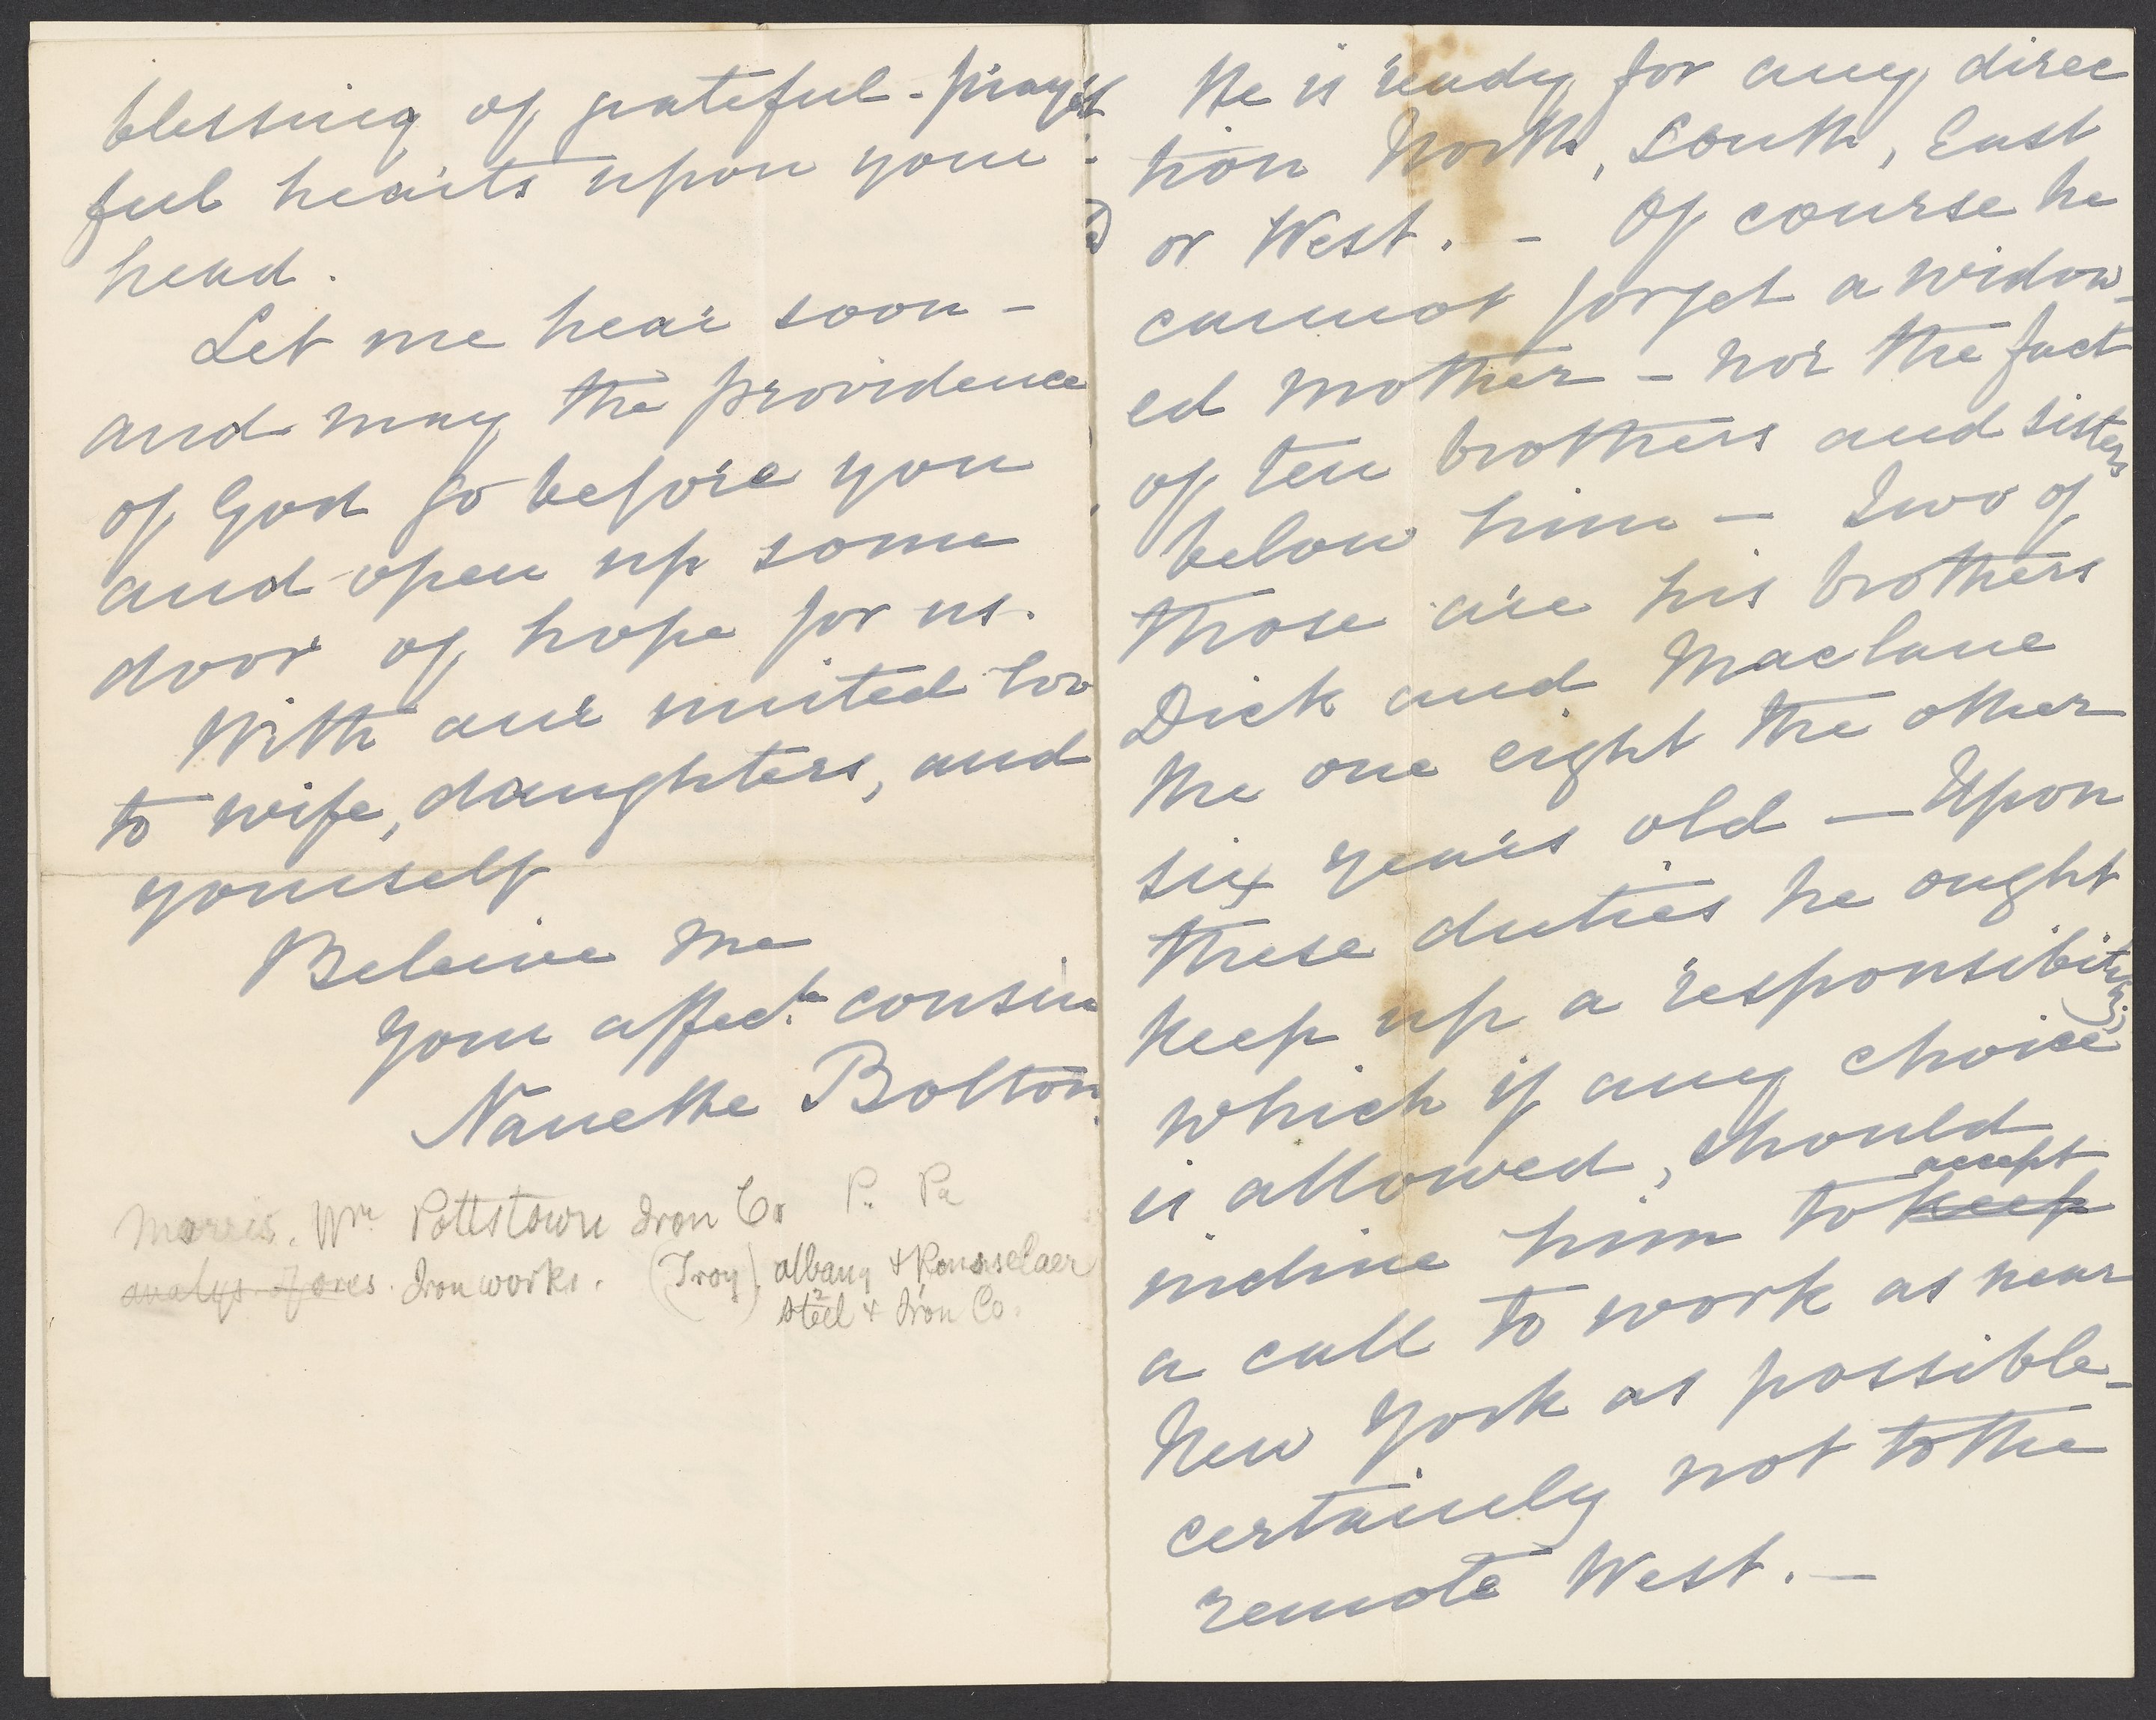 blessing of grateful - prayer
ful hearts upon your
head.
Let me hear soon -
and may the providence
of God go before you
and open up some
door of hope for us.
With our united lov
to wife, daughters, and
yourself
Beleive me
Your affec.te cousin
Nanette Bolton
Morris. Wm Pottstown Iron Co P. Pa
analys. of ores. Iron works. (Troy), albany & Rensselaer
Steel & Iron Co.
He is ready for any direc
tion North, South, East
or West. - Of course he
cannot forget a widow-
ed mother - nor the fact
of ten brothers and sisters
below him - Two of
those are his brothers
Dick and Maclane
the one eight the other
six years old - Upon
these duties he ought
keep up a responsibility;
which if any choice
is allowed, should
accept
incline him to keep
a call to work as near
New York as possible -
certainly not to the
remote West. -